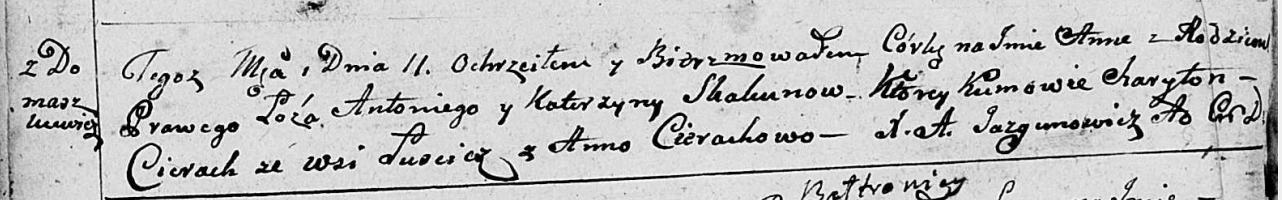 z Do
masz
kiewicz
Tegoż Mca i Dnia 11. Ochrzciłem y Bierzmowałem Córkę na Imie Anne z Rodzicow
Prawego Łoża Antoniego y Katerzyny Skakunow – Którey Kumowie Charyton –
Cierach ze wsi Puscicz z Anno Cierachowo – X. A. Jazgunowicz Ad
Bałtronicy